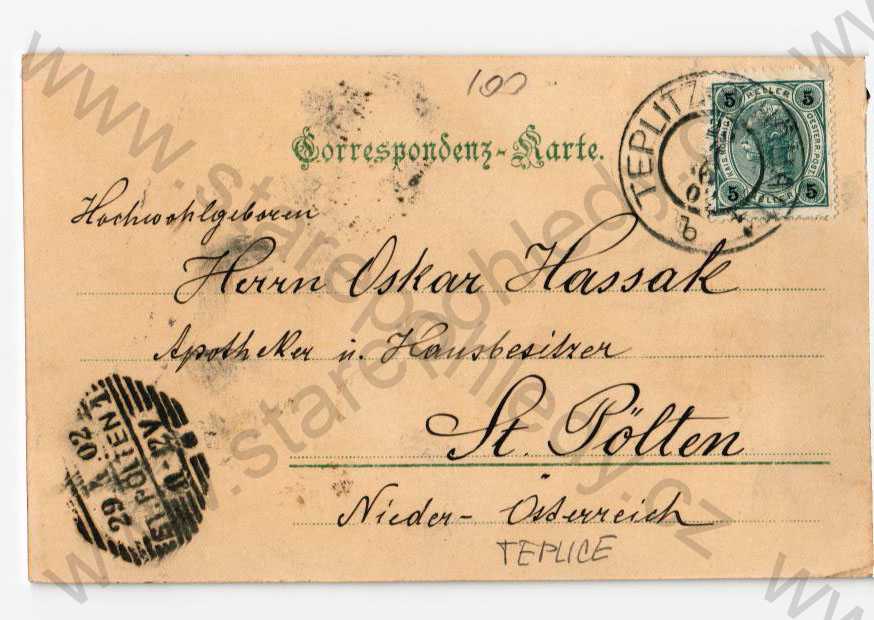 100
Correspondenz-Karte.
TEPLITZ
b
5 HELLER 5
5 5
Hochwohlgeboren
Herrn Oskar Hassak
Apotheker u. Hausbesitzer
St. Pölten
Nieder-Österreich
TEPLICE
ST. PÖLTEN 1
29 02
www.stare-pohledy.cz